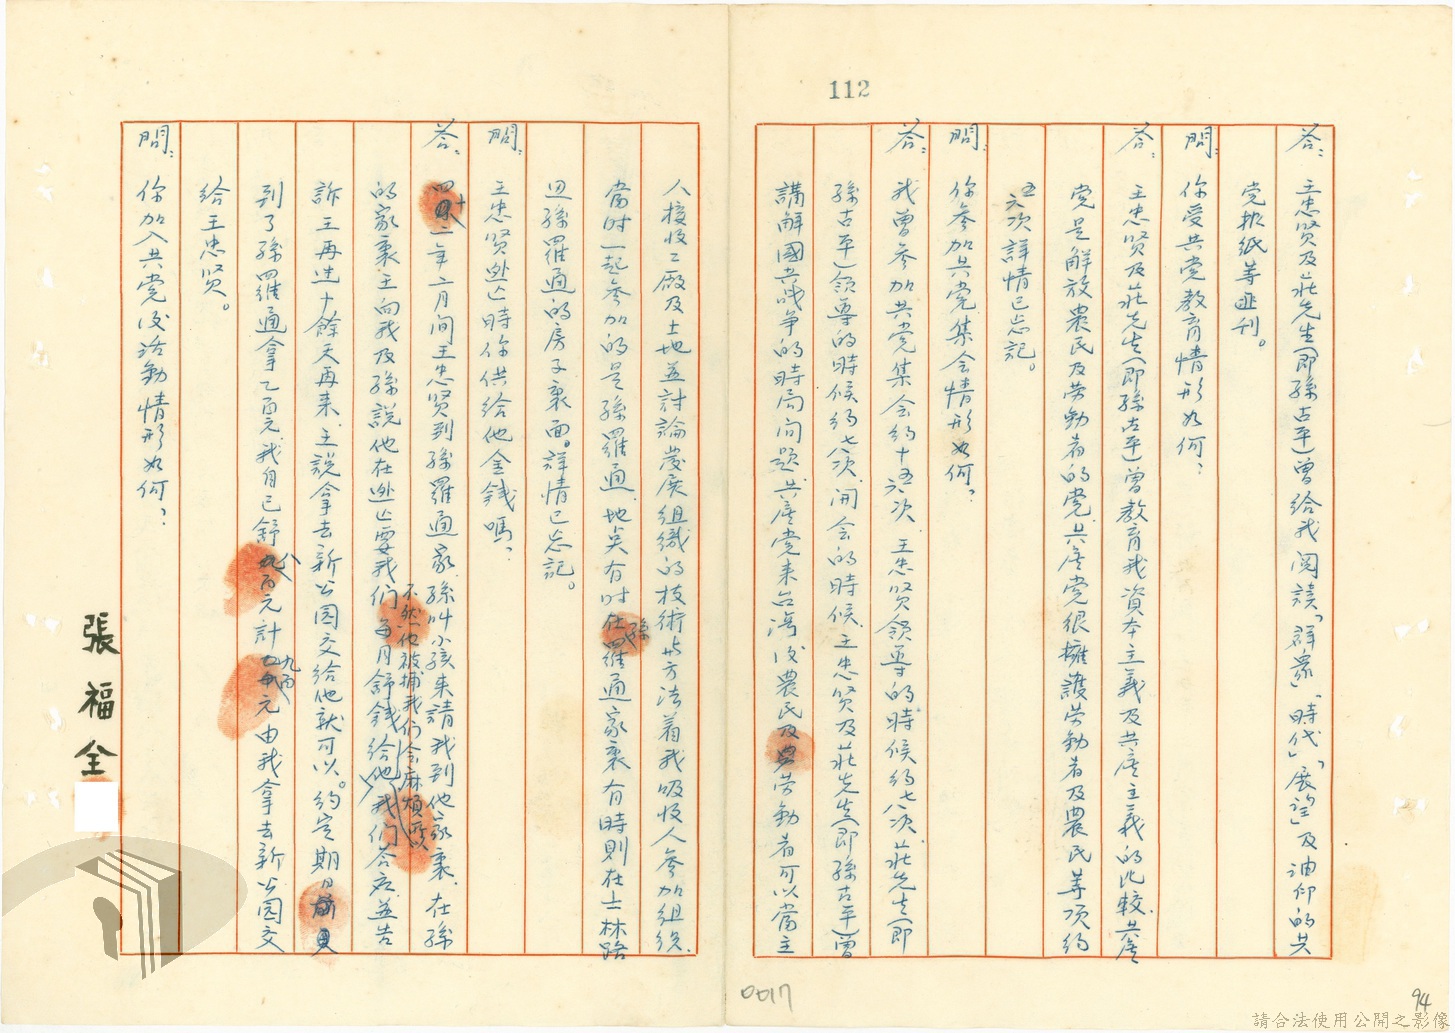 112
答：王忠贤及莊先生(即孫古平)曾給我阅讀「群眾」「時代」、「展望」及油印的共
党报紙等匪刊。
問：你受共党教育情形如何？
答：王忠贤及莊先生(即孫古平)曾教育我資本主義及共產主義的比較.共產
党是解放農民及劳動者的党.共產党很擁護劳動者及農民等項約
五六次詳情已忘記。
問：你參加共党集会情形如何？
答：我曾參加共党集会約十五六次.王忠贤領導的時候約七八次.莊先生(即
孫古平)領導的時候約七八次.開会的時候.王忠贤及莊先生(即孫古平)曾
講解國共战争的時局问题.共產党来台湾後農民及劳動者可以當主
人接收工廠及土地並討論發展組織的技術与方法着我吸收人參加組织.
當时一起參加的是孫羅通.地奌有时在孫羅通家裏有時則在士林路
边孫羅通的房子裏面。詳情已忘記。
問：王忠贤逃亡時你供給他金錢嗎？
答：四十二年二月间王忠贤到孫羅通家.孫叫小孩来請我到他家裏.在孫
的家裏王向我及孫說他在逃亡要我们每月籌錢給他不然他被捕我们会麻煩所以我们答应並告
訴王再过十餘天再来.王說拿去新公园交給他就可以。約定期日
到了孫羅通拿乙百元.我自已籌八百元計九百元由我拿去新公园交
給王忠贤。
問：你加入共党後活動情形如何？
張福全
0017
94
請合法使用公開之影像